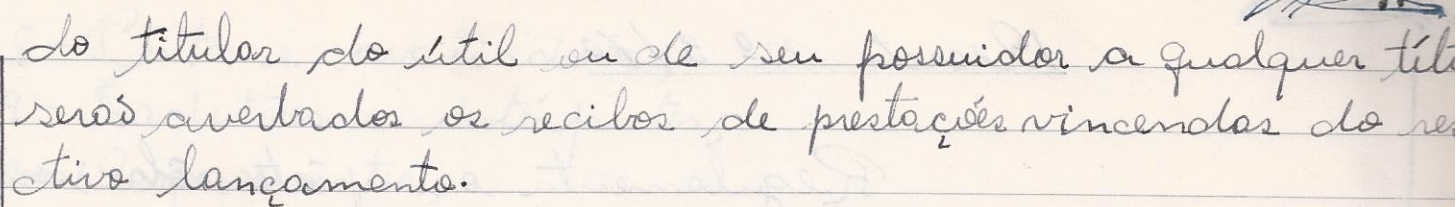 do titular do útil ou de seu possuidor a qualquer títu
serão averbados os recibos de prestações vincendas do res
ctivo lançamento.